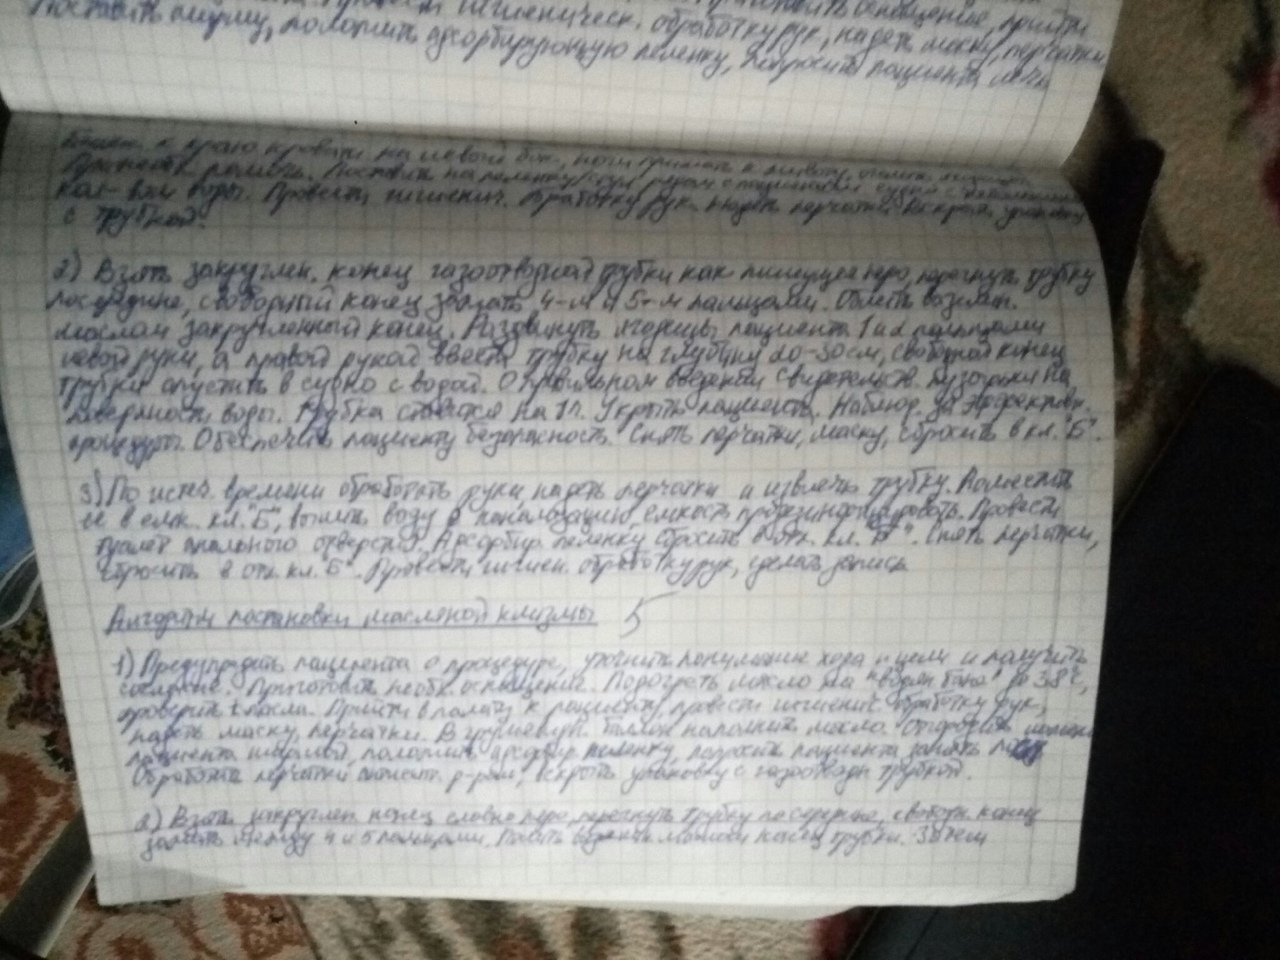 поставить ширму, положить адсорбирующую пеленку, попросить пациента лечь
ближе к краю кровати на левый бок, ноги прижать к животу,
кол-вом воды. Провести гигиенич. обработку рук. Надеть перчатки. Вскрыть упаковку
с трубкой.
2) Взять закруглен. конец газоотводной трубки как пишущее перо, перегнуть трубку
посередине, свободный конец зажать 4-м и 5-м пальцами. Полить вазелин.
маслом закругленный конец. Раздвинуть ягодицы пациента 1 и 2 пальцами
левой руки, а правой рукой ввести трубку на глубину 20-30 см, свободной конец
трубки опустить в судно с водой. О правильном введении свидетельств. пузырьки на
поверхности воды. Трубка ставится на 1ч. Укрыть пациента. Наблюд. за эффективн.
процедуры. Обеспечить пациенту безопасность. Снять перчатки, маску, сбросить в кл. "Б".
3) По истеч. времени обработать руки, надеть перчатки и извлечь трубку. Поместить
ее в емк. кл. "Б", вылить воду в канализацию, емкость продезинфицировать. Провести
туалет анального отверстия. Адсорбир. пеленку сбросить в отх. кл. "Б". Снять перчатки,
сбросить в отх. кл. "Б". Провести гигиен. обработку рук, сделать запись
Алгоритм постановки масляной клизмы 5
1) Предупредить пациента о процедуре, уточнить понимание хода и цели и получить
согласие. Приготовить необх. оснащение. Подогреть масло на "водян бане" до 38°C,
проверить t масла. Прийти в палату к пациенту, провести гигиенич обработку рук,
надеть маску, перчатки. В грушевидн. баллон наполнить масло. Отгородить
пациента ширмой, положить адсорбир. пеленку, попросить пациента занять
Обработать перчатки антисепт. р-ром, вскрыть упаковку с газоотводн. трубкой.
2) Взять закруглен конец словно перо, перегнуть трубку посередине, свободн. конец
зажать между 4 и 5 пальцами. Полить вазелин. маслом конец трубки.